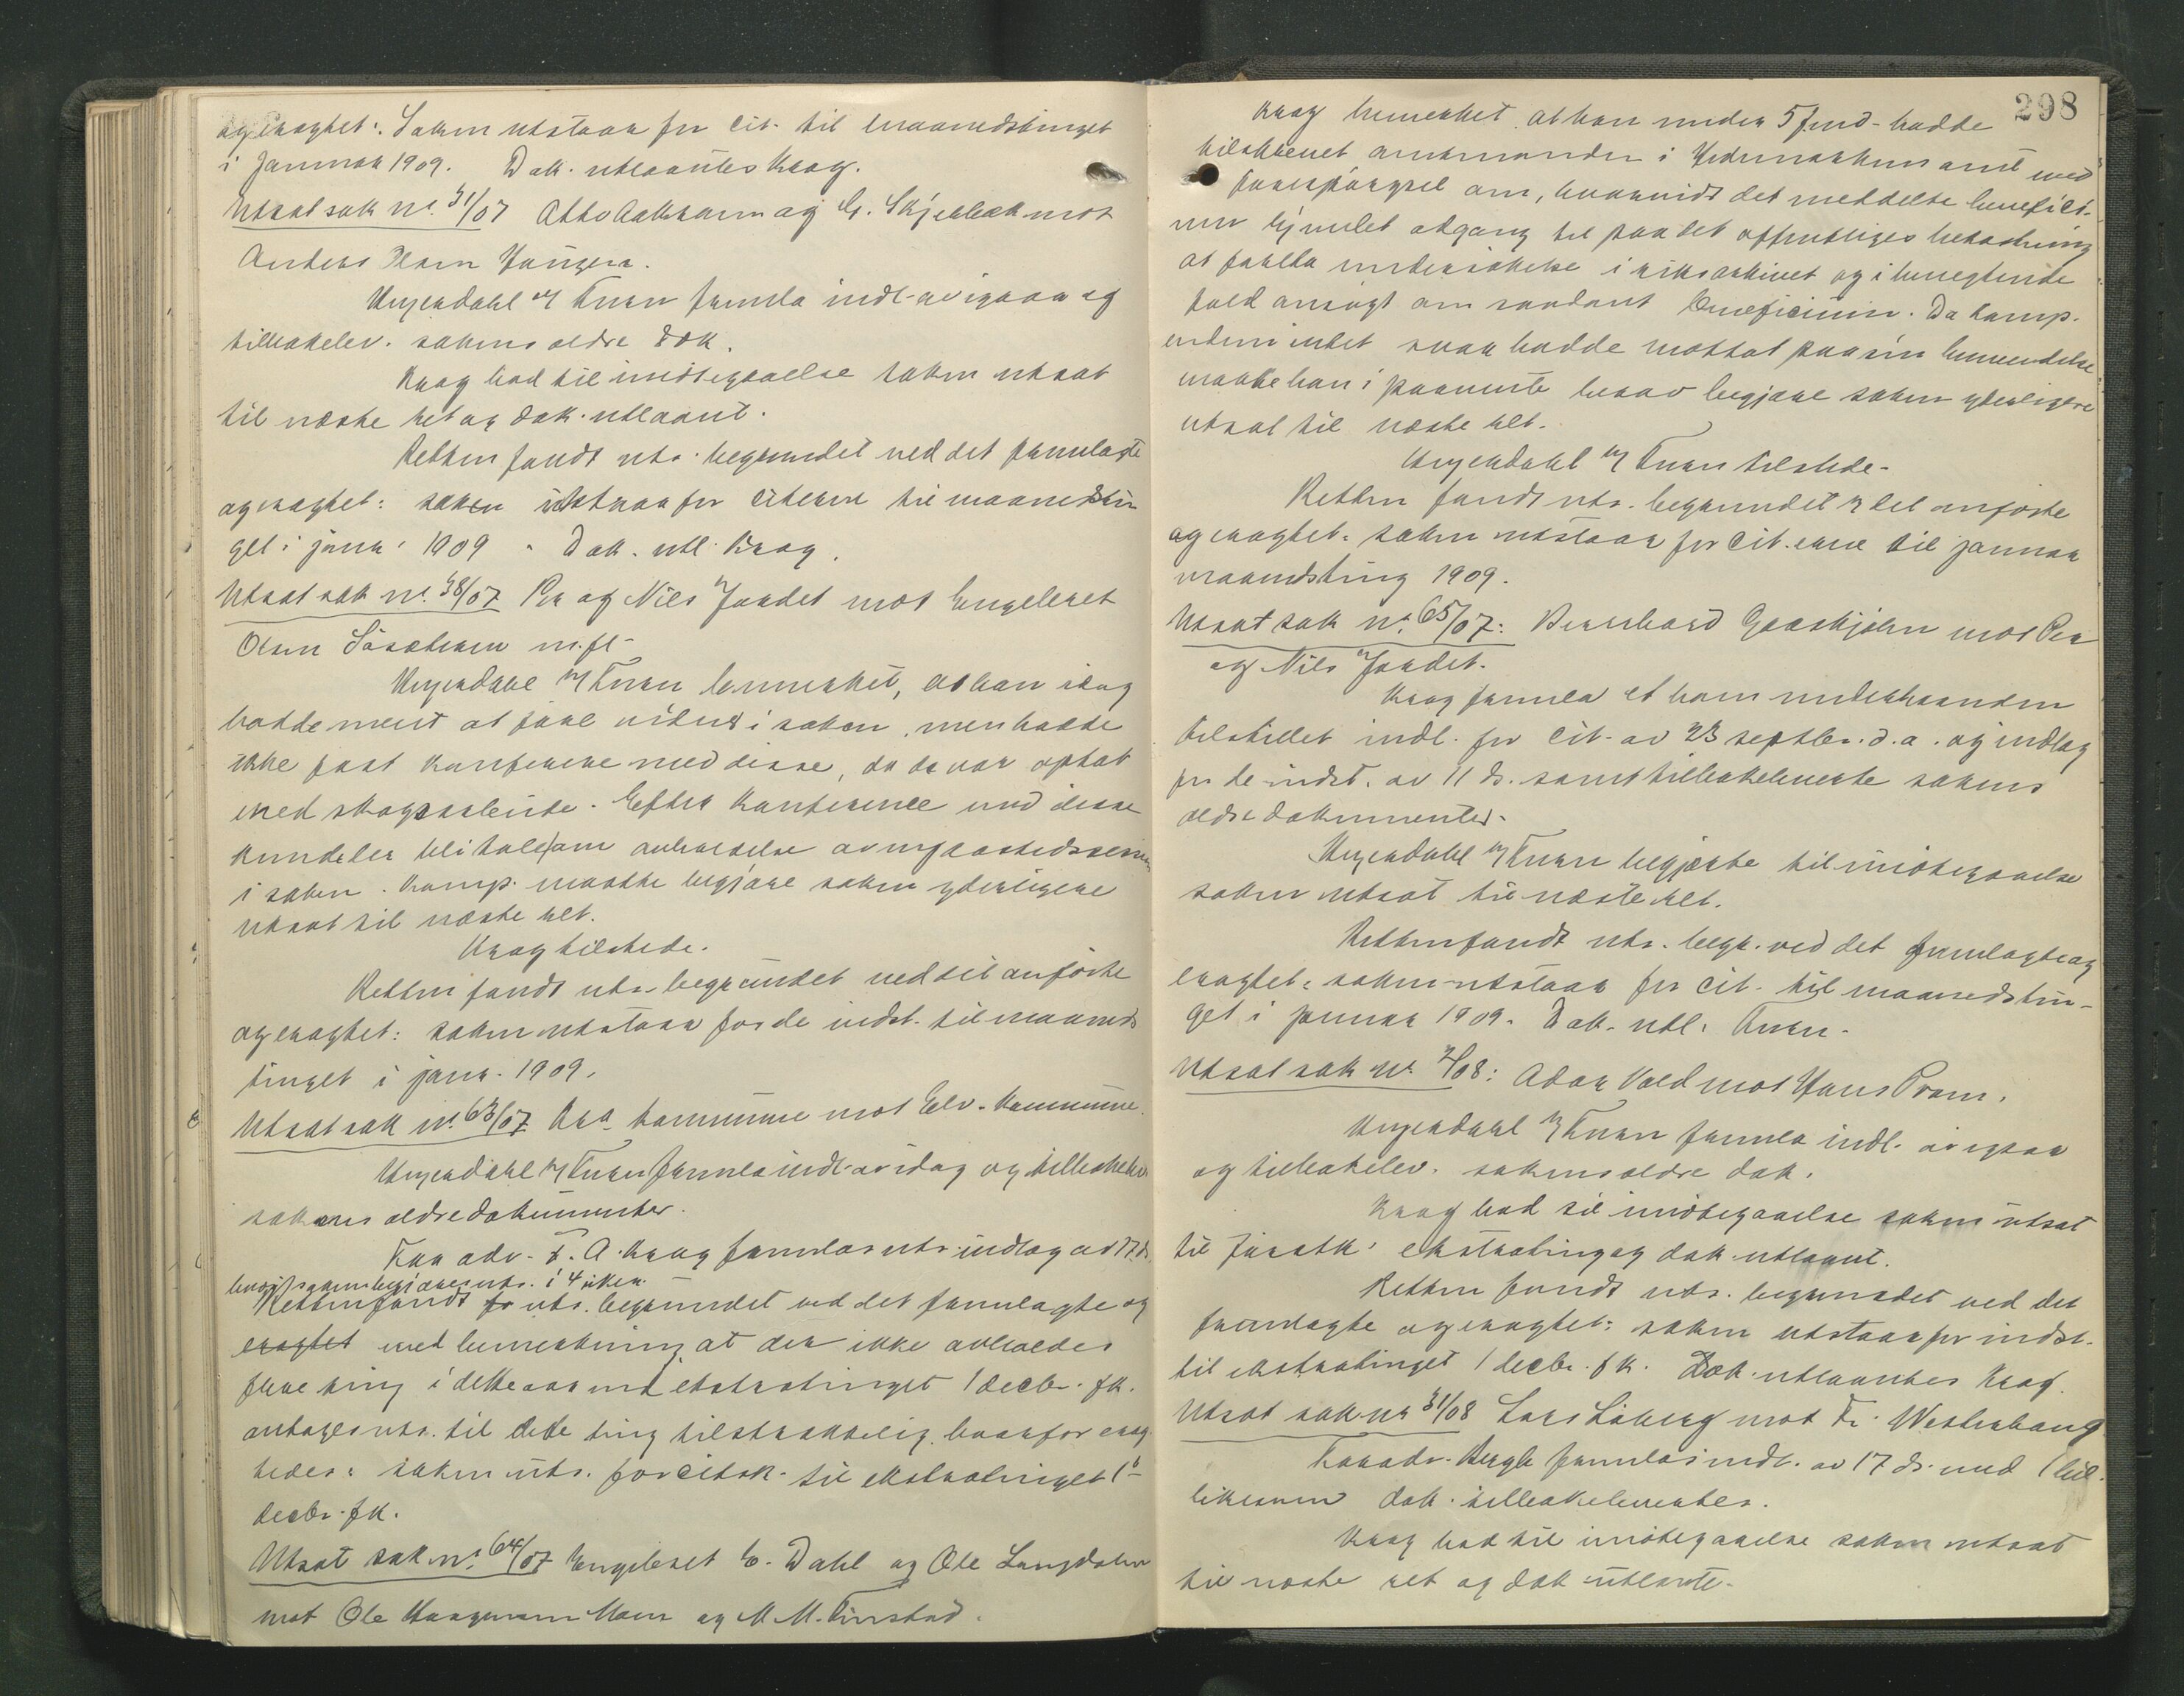 og eragtet: Saken utstaar for cit. til maanedstinget
i Januar 1909. Dok. utlaantes Krag.
Utsat sak nr. 31/07 Otto Aakrann og C. Skjerbæk mot
Anders Olsen
Ungerdahl for Tuxen fremla indl. av igaar og
tilbakelev. sakens ældre dok.
Krag bad til imøtegaaelse saken utsat
til næste ret og dok. utlaant.
Retten fandt uts. begrundet ved det fremlagte
og eragtet: saken utstaar for citerne til maanedstin
get i janr. 1909. Dok. utl. Krag.
Utsat sak nr. 38/07 Per og Nils Jordet mot Engebret
Olsen m. fl.
Ungerdahl for Tuxen bemerket, at han idag
hadde ment at føre vidner i saken, men hadde
ikke faat konferere med disse, da de var optat
med skogsarbeide. Efter konference med disse
kunde der bli tale om anholdelse av
i saken. Komp. maatte begjære saken yderligere
utsat til næste ret.
Krag tilstede.
Retten fandt uts. begrundet ved det anførte
og eragtet: saken utstaar for de indst. til maaneds
tinget i janr. 1909.
Utsat sak nr. 63/07 kommune mot Elv. kommune.
Ungerdahl for Tuxen fremla indl. av idag og tilbakelev.
sakens ældre dokumenter.
For adv. T. A. Krag fremlaes uts. indlæg av 17 ds.
hvori saken begjæres uts. i 4 uker.
Retten fandt uts. begrundet ved det fremlagte og
eragtet med bemerkning, at der ikke avholdes
flere ting i dette aar end ekstratinget 1 decbr. fk.
antages uts. til dette ting tilstrækkelig, hvorfor erag
tedes: saken uts. for citsk. til ekstratinget 1ste
decbr. fk.
Utsat sak nr. 64/07 Engebret C. Dahl og Ole Langdalen
mot Ole Haagensen Moen og M. M. Finstad.
298
Krag bemerket at han under 5 hadde
tilskrevet amtmanden i Hedemarkens amt med
forespørgsel om, hvorvidt det meddelte benefici-
um hjemlet adgang til paa det offentliges bekostning
at foreta undersøkelse i riksarkivet og i benegtende
fald ansøgt om saadant beneficium. Da komp.
endnu intet svar hadde mottat paa sin henvendelse
maatte han i paavente herav begjære saken yderligere
utsat til næste ret.
Ungerdahl for Tuxen tilstede.
Retten fandt uts. begrundet v. det anførte
og eragtet: saken utstaar for cit.erne til januar
maanedsting 1909.
Utsat sak nr. 65/07: Bernhard mot Per
og Nils Jordet.
Krag fremla et ham underhaanden
tilstillet indl. for cit. av 23 septbr. d.a. og indlæg
for de indst. av 11 ds. samt tilbakeleverte sakens
ældre dokumenter.
Ungerdahl for Tuxen begjærte til imøtegaaelse
saken utsat til næste ret.
Retten fandt uts. begr. ved det fremlagte og
eragtet: saken utstaar for cit. til maanedstin-
get i januar 1909. Dok. utl. Tuxen.
Utsat sak nr. 2/08: Adar Vold mot Hans Pram.
Ungerdahl for Tuxen fremla indl. av igaar
og tilbakelev. sakens ældre dok.
Krag bad til imøtegaaelse saken utsat
til førstk. ekstrating og dok. utlaant.
Retten fandt uts. begrundet ved det
fremlagte og eragtet: saken utstaar for indst.
til ekstratinget 1 decbr. fk. Dok. utlaantes Krag.
Utsat sak nr 31/08 Lars Løberg mot Fr. Westerhaug
For adv. Bergh fremlaes indl. av 17 ds. med 1 bil.
likesom dok. tilbakelevertes.
Krag bad til imøtegaaelse saken utsat
til næste ret og dok. utlaante.